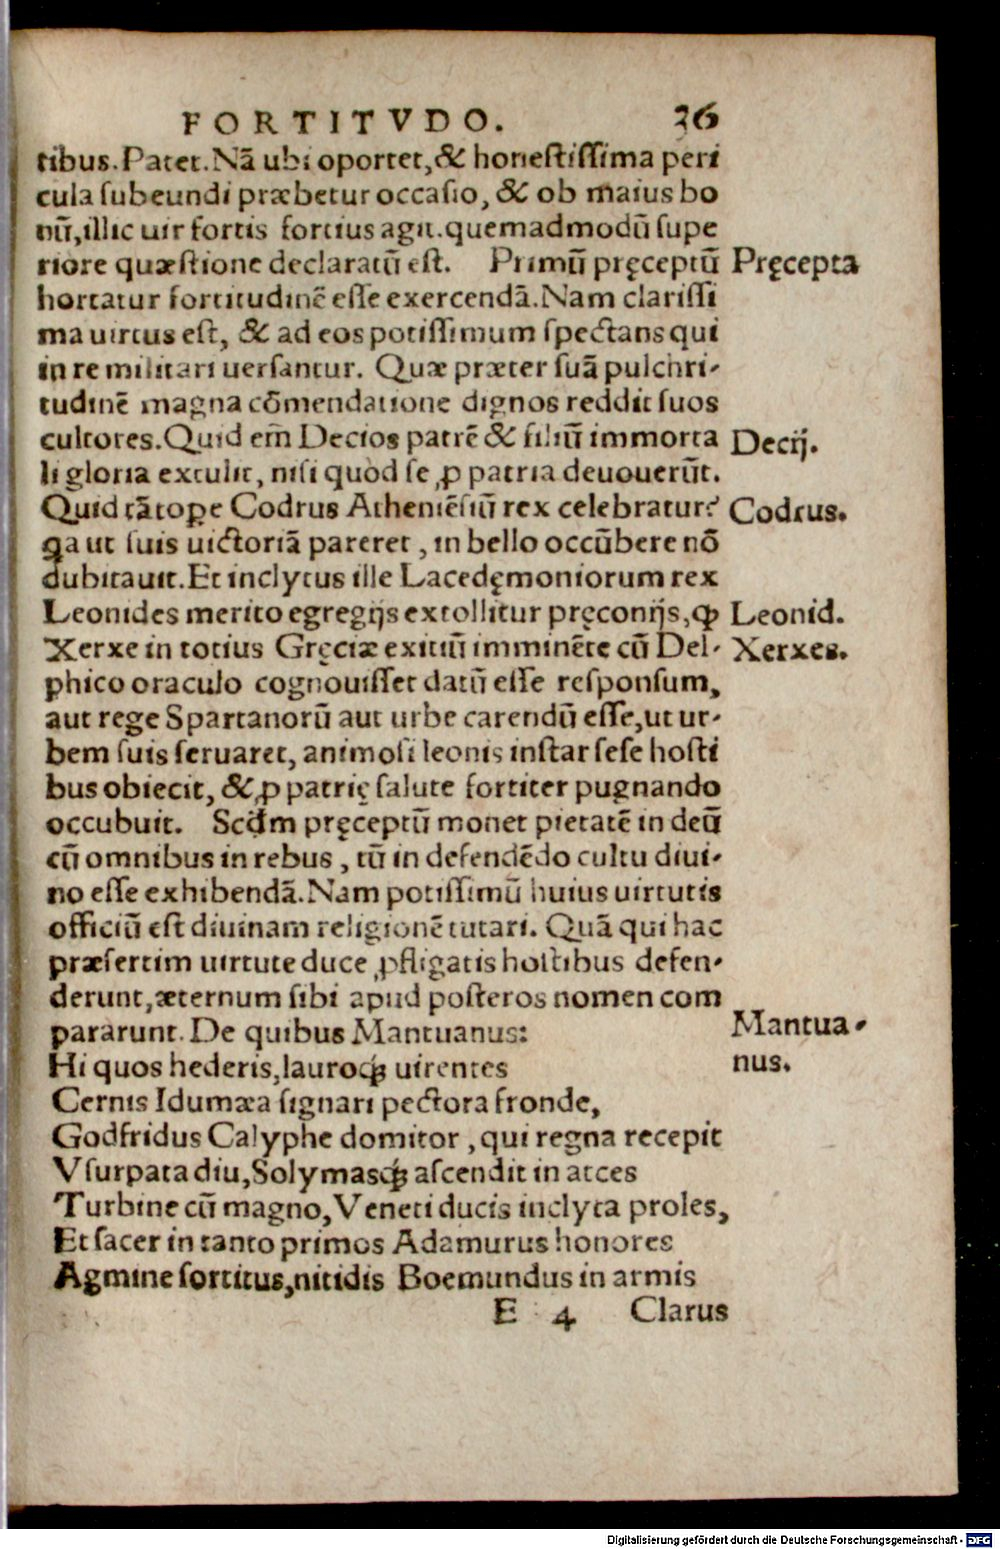 FORTITVDO. 36
tibus. Patet. Nā ubi oportet, & honestissima peri
cula subeundi præbetur occasio, & ob maius bo
nū, illic uir fortis fortius agit. quemadmodū supe
riore quæstione declaratū est. Primū pręceptū Pręcepta
hortatur fortitudinē esse exercendā. Nam clarissi
ma uirtus est, & ad eos potissimum spectans qui
in re militari uersantur. Quæ præter suā pulchri-
tudinē magna cōmendatione dignos reddit suos
cultores. Quid em̄ Decios patrē & filiū immorta Decij.
li gloria extulit, nisi quòd se ꝓ patria deuouerūt.
Quid tātope Codrus Atheniēsiū rex celebratur? Codrus.
ꝗa ut suis uictoriā pareret, in bello occūbere nō
dubitauit. Et inclytus ille Lacedęmoniorum rex
Leonides merito egregijs extollitur pręconijs, ꝙ Leonid.
Xerxe in totius Gręciæ exitiū imminēte cū Del- Xerxes.
phico oraculo cognouisset datū esse responsum,
aut rege Spartanorū aut urbe carendū esse, ut ur-
bem suis seruaret, animosi leonis instar sese hosti
bus obiecit, & ꝓ patrię salute fortiter pugnando
occubuit. Scđm pręceptū monet pietatē in deū
cū omnibus in rebus, tū in defendēdo cultu diui-
no esse exhibendā. Nam potissimū huius uirtutis
officiū est diuinam religionē tutari. Quā qui hac
præsertim uirtute duce ꝓfligatis hostibus defen-
derunt, æternum sibi apud posteros nomen com
pararunt. De quibus Mantuanus: Mantua-
nus.
Hi quos hederis, lauroqꝫ uirentes
Cernis Idumæa signari pectora fronde,
Godfridus Calyphe domitor, qui regna recepit
Vsurpata diu, Solymasqꝫ ascendit in arces
Turbine cū magno, Veneti ducis inclyta proles,
Et sacer in tanto primos Adamurus honores
Agmine sortitus, nitidis Boemundus in armis
E 4 Clarus
Digitalisierung gefördert durch die Deutsche Forschungsgemeinschaft - DFG